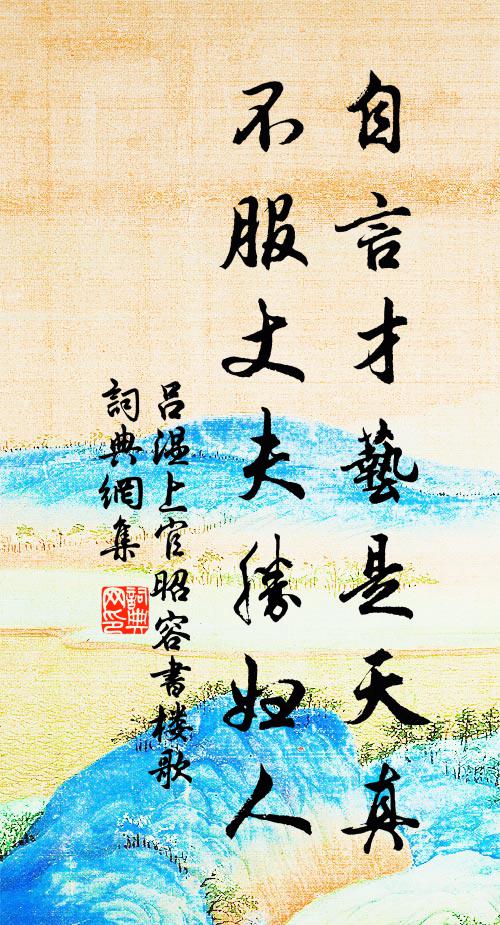 自言才藝是天真
不服丈夫勝婦人
吕温上官昭容書楼歌
詞典網集
詞典
网印